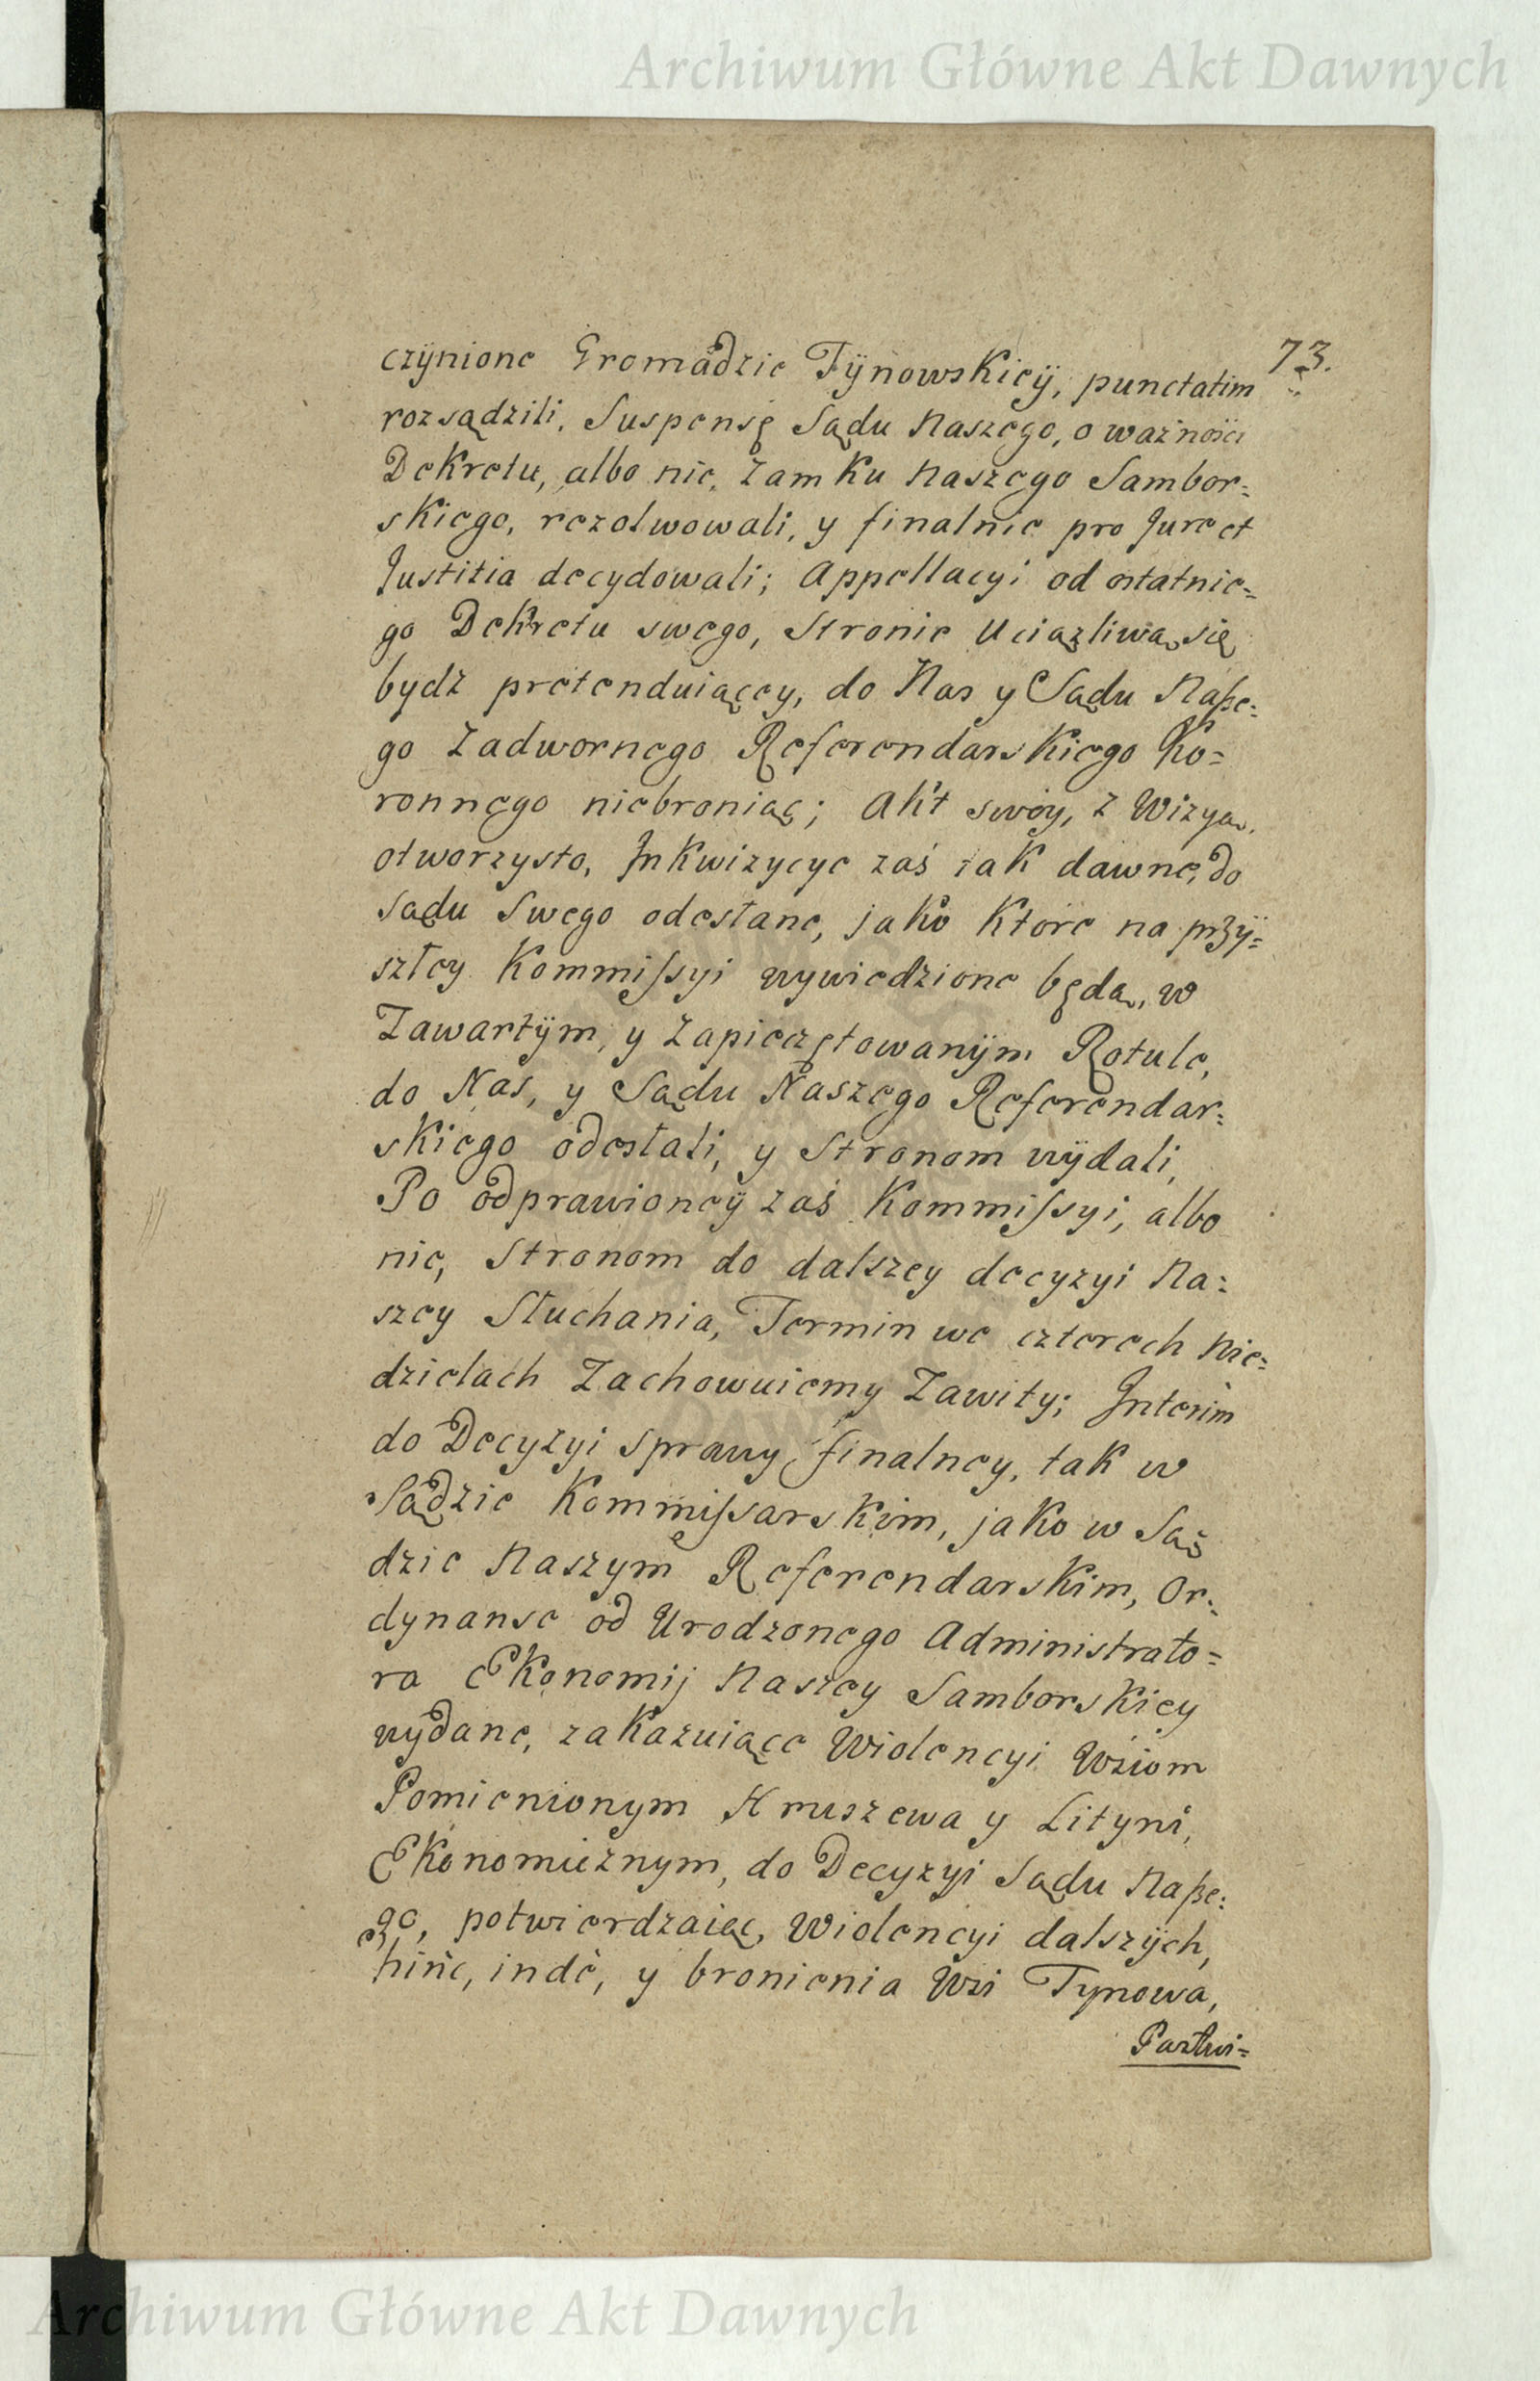 Archiwum Główne Akt Dawnych
73.
czÿnione Gromadzie Tÿnowskieÿ, punctatim
rozsądzili, Suspensę Sądu Naszego, o ważności
Dekretu, albo nie, Zamku Naszego Sambor=
skiego, rezolwowali, y finalnie pro Jure et
Justitia decydowali; Appellacyi od ostatnie=
go Dekretu swego, Stronie Uciążliwą się
bydź pretenduiącey, do Nas y Sądu Naße=
go Zadwornego Referendarskiego Ko=
ronnego niebroniąc; Akt swóy, z Wizyą,
otworzysto, Inkwizycye zaś tak dawne, do
Sądu Swego odesłane, jako które na przÿ=
szłey Kommissyi wywiedzione będą, w
Zawartÿm, y Zapieczętowanÿm Rotule,
do Nas, y Sądu Naszego Referendar=
skiego odesłali, y Stronom wÿdali,
Po odprawioneÿ zaś Kommissyi, albo
nie, Stronom do dalszey decyzyi Na=
szey Słuchania, Termin we czterech Nie=
dzielach Zachowuiemy Zawity; Interim
do Decyzyi sprawy finalney, tak w
Sądzie Kommissarskim, jako w Są=
dzie Naszym Referendarskim, Or=
dynanse od Urodzonego Administrato=
ra Ekonomij Naszey Samborskiey
wydane, zakazuiące Wiolencyi Wsiom
Pomienionym Hruszewa y Lityni,
Ekonomicznym, do Decyzyi Sądu Naße=
go, potwierdzaiąc, Wiolencyi dalszÿch,
hinc, inde, y bronienia Wsi Tynowa,
Pastwi=
Archiwum Główne Akt Dawnych